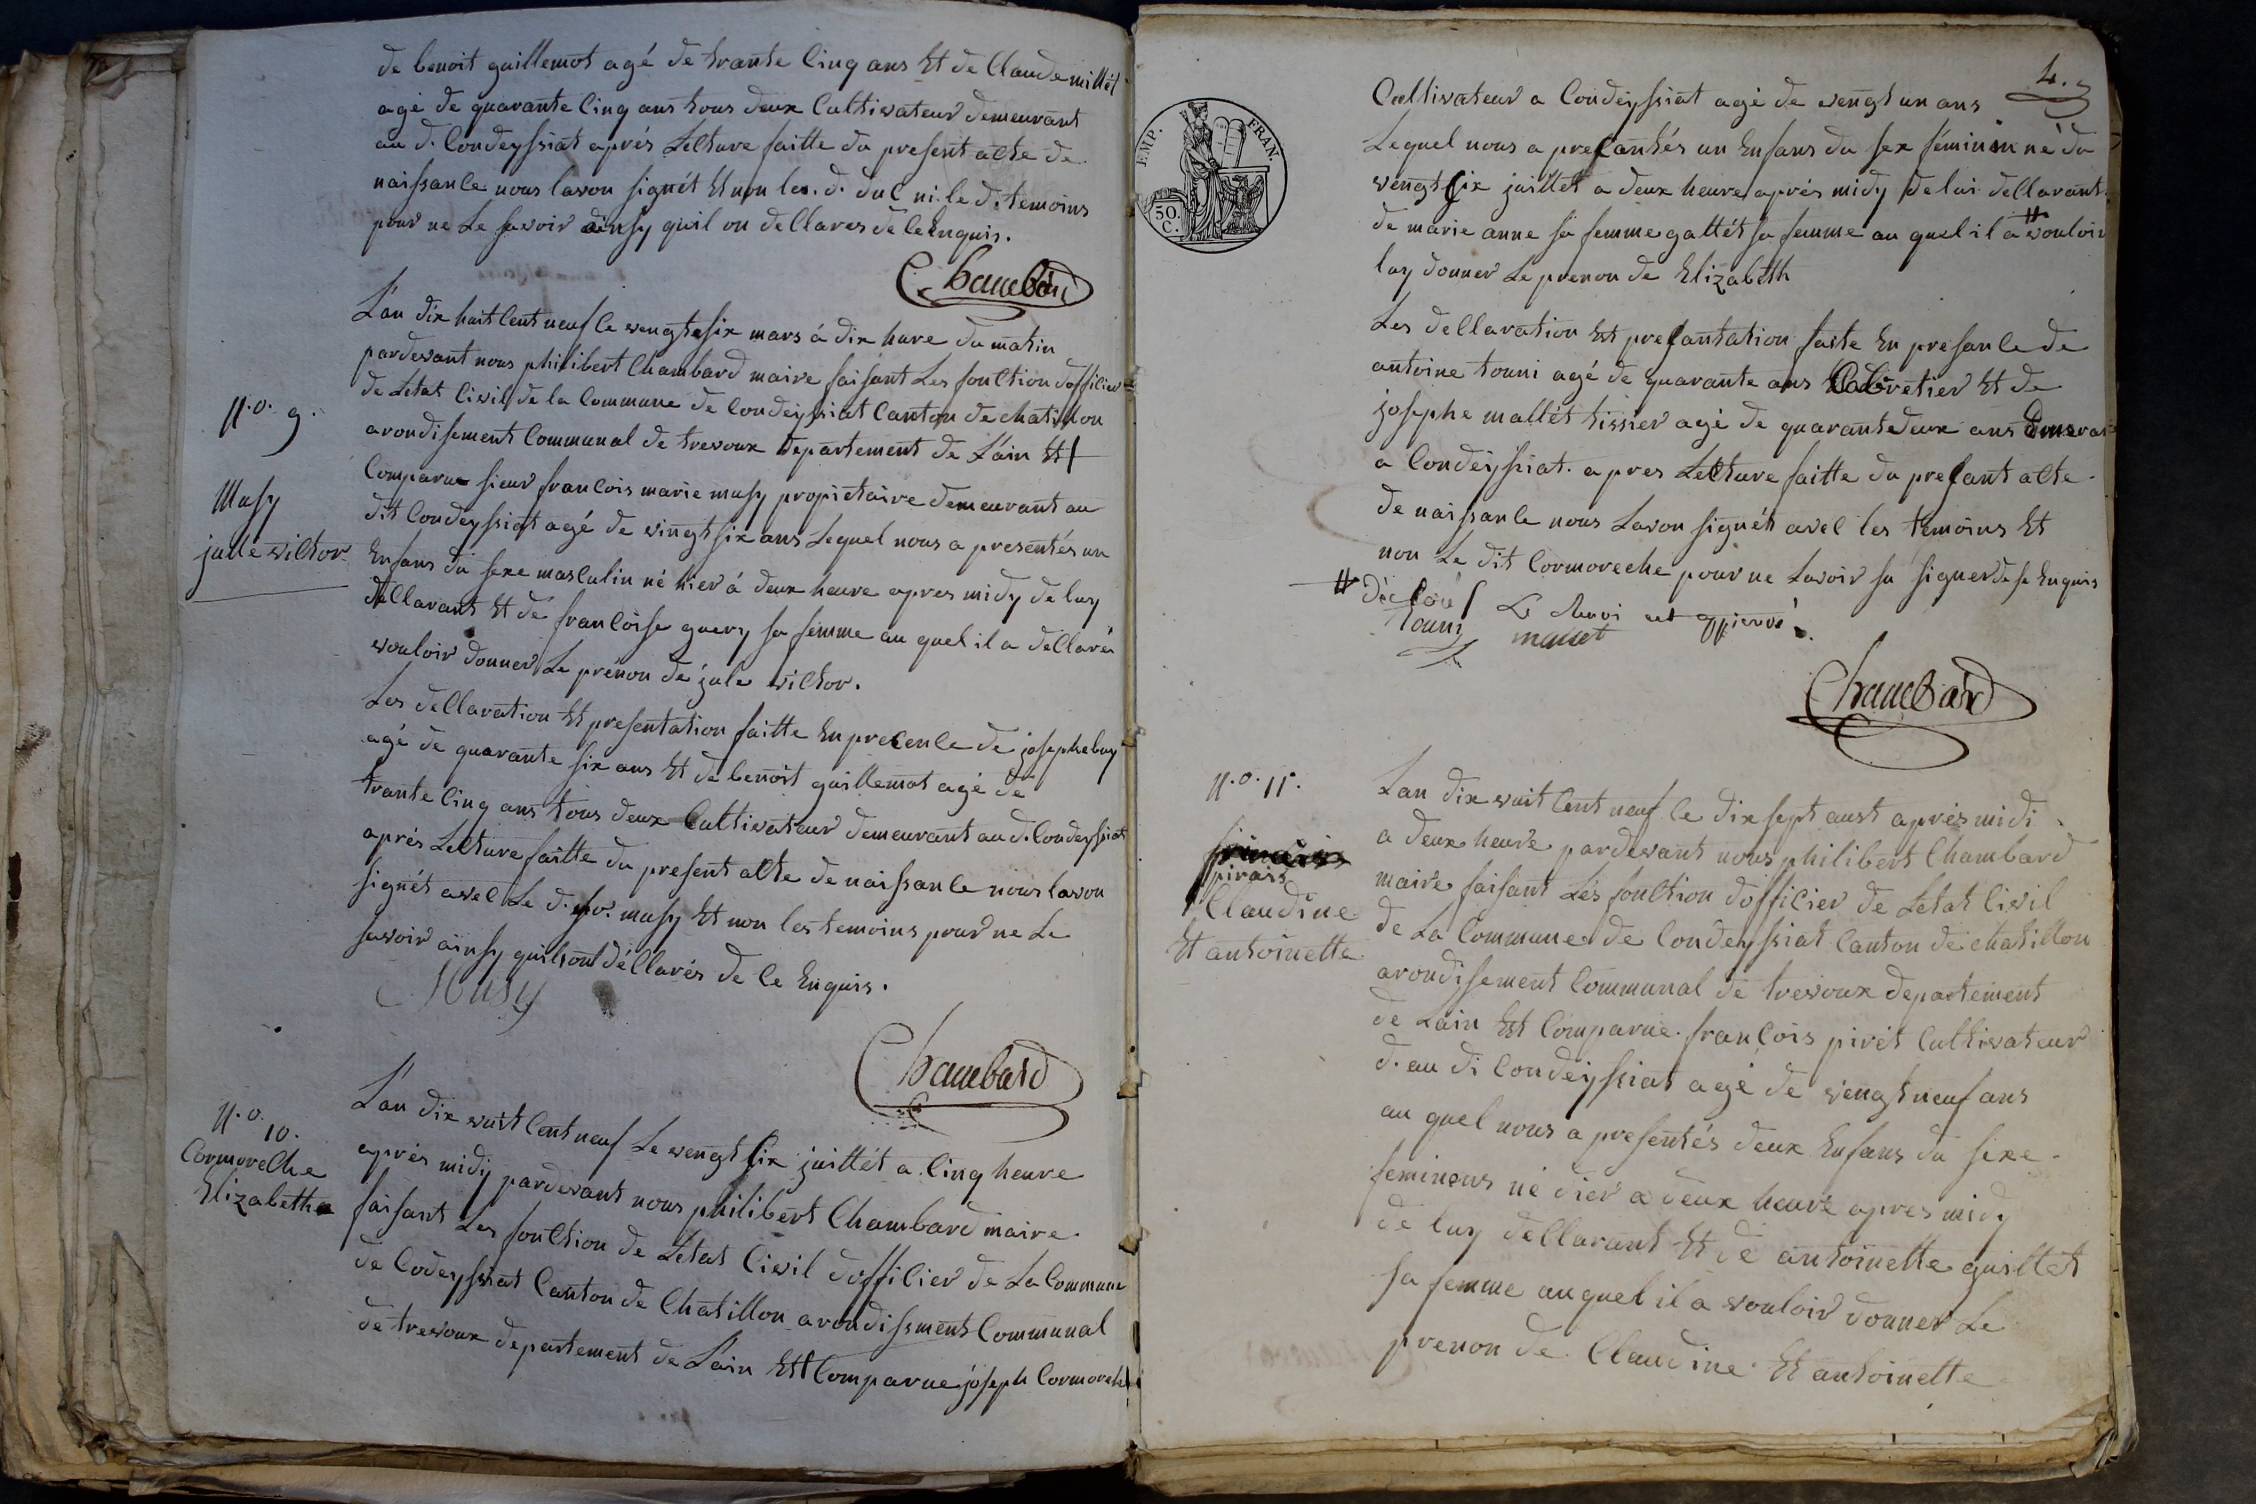 de benoit guillemot agé de trante Cinq ans Et de Claude millet
agé de quarante Cinq ans tous deux Cultivateur demeurant
au d. Condeyssiat aprés Lecture faitte du present acte de
naissance nous lavon signét Et non les. d. duc ni. le d. temoins
pour ne Le savoir ainsy quil on decllares de ce Enquis.
Chambard
L'an dix huit Cent neuf le vengt six mars á dix hure du matin
pardevant nous philibert Chambard maire faisant Les fonction dofficier
de Letat Civil de la Commune de Condeyssiat Canton de chatillon
arondisement Communal de trevoux Departement de L'ain Est
Comparue sieur francois marie musy propietaire demeurant au
dit Condeyssiat agé de vingt six ans Lequel nous a presentés un
Enfans du sexe masculin né hier á deux heure apres midy de luy
decllarant Et de francoise guery sa femme au quel il a decllaréi
vouloir donner Le prénon de jule victor.
Les decllaration Et presentation faitte En precence de josephe buy
agé de quarante six ans Et de benoit guillemot agé de
trante Cinq ans tous deux Cultivateur demeurant au d. Condeyssiat
aprés Lecture faitte du present acte de naissance nous lavon
signét avec Le d. sr. musy Et non les temoins pour ne Le
savoir ainsy quil ont décllarés de ce Enquis.
Musy
Chambard
N.o. 9.
Musy
jule victor
N.o. 10.
Cormoreche
Elizabeth
L'an dix vuit Cent neuf Le vengt six juillét a Cinq heure
aprés midy pardevant nous philibert Chambard maire
faisant Les fonction de Letat Civil dofficier de La Commune
de Codeyssiat Canton de Chatillon arondissment Communal
de trevoux departement de L'ain Est Comparue joseph Cormoreche
4.
EMP. FRAN.
50. C.
Cultivateur a Condeyssiat agé de vengt un ans
Lequel nous a presantés un Enfans du sex féminin né du
vengt six juillet a deux heure aprés midy de lui decllarant
de marie anne sa femme gallét sa femme au quel il a # vouloir
luy donner Le prenon de Elizabeth
Les decllaration Est presantation faite En presance de
antoine touni agé de quarante ans Cabretier Et de
josephe mallét tissier agé de quarante deux ans
a Condeyssiat. apres Lecture faitte du presant acte
de naissance nous Lavon signét avec les temoins Et
non Le dit Cormoreche pour ne Lavoir su signer de se Enquis
Touni mallet
Chambard
N.o. 11.
pirais
Claudine
Et antoinette
Lan dix vuit Cent neuf le dix sept aust aprés midi
a deux heure pardevant nous philibert Chambard
maire faisant Les fonction dofficier de Letat Civil
de La Commune de Condeyssiat Canton de chatillon
arondisement Communal de trevoux departement
de Lain Est Comparue. françois pirét Cultivateur
d. au di Condeyssiat agé de vengt neuf ans
au quel nous a presentés deux Enfans du sexe
feminens né dier a deux heure apres midy
de luy decllarant Et de antoinette guillet
sa femme au quel il a vouloir donner Le
prenon de Claudine Et antoinette